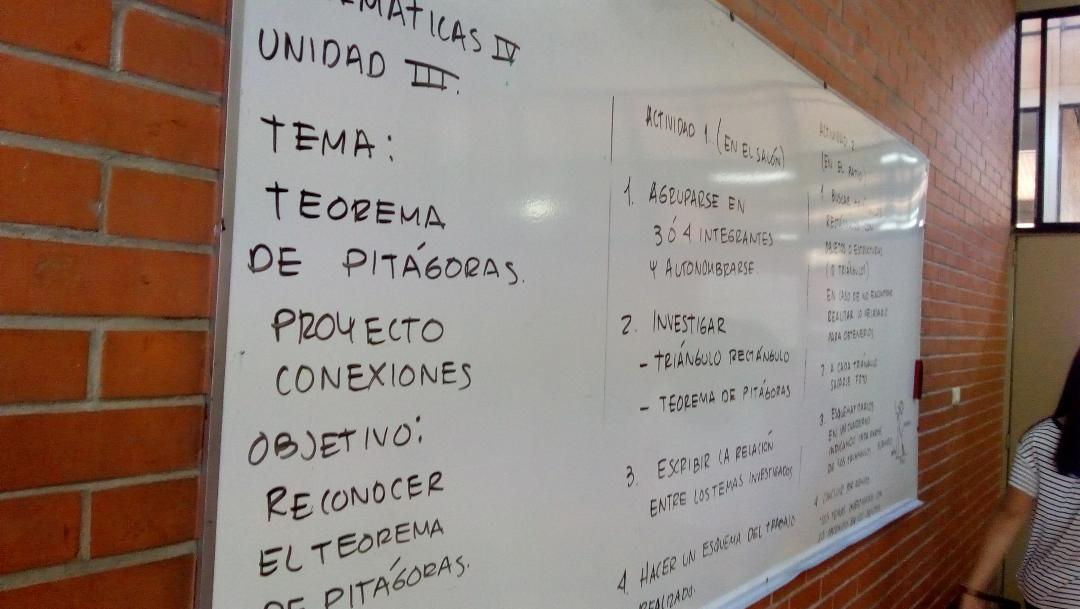 MATICAS IV
UNIDAD III.
TEMA:
TEOREMA
DE PITÁGORAS.
PROYECTO
CONEXIONES
OBJETIVO:
RECONOCER
EL TEOREMA
DE PITÁGORAS.
ACTIVIDAD 1. (EN EL SALÓN)
1. AGRUPARSE EN
3 Ó 4 INTEGRANTES
Y AUTONOMBRARSE.
2. INVESTIGAR
- TRIÁNGULO RECTÁNGULO
- TEOREMA DE PITÁGORAS
3. ESCRIBIR LA RELACIÓN
ENTRE LOS TEMAS INVESTIGADOS
4. HACER UN ESQUEMA DEL TRABAJO
REALIZADO.
ACTIVIDAD 2
(EN EL PATIO)
1 BUSCAR
OBJETOS O ESTRUCTURAS
EN CASO DE NO ENCONTRAR
REALIZAR LO NECESARIO
PARA OBTENERLOS
2 A CADA TRIÁNGULO
SACARLE FOTO
3. ESQUEMATIZARLOS
EN
DE LOS TRIÁNGULOS
4